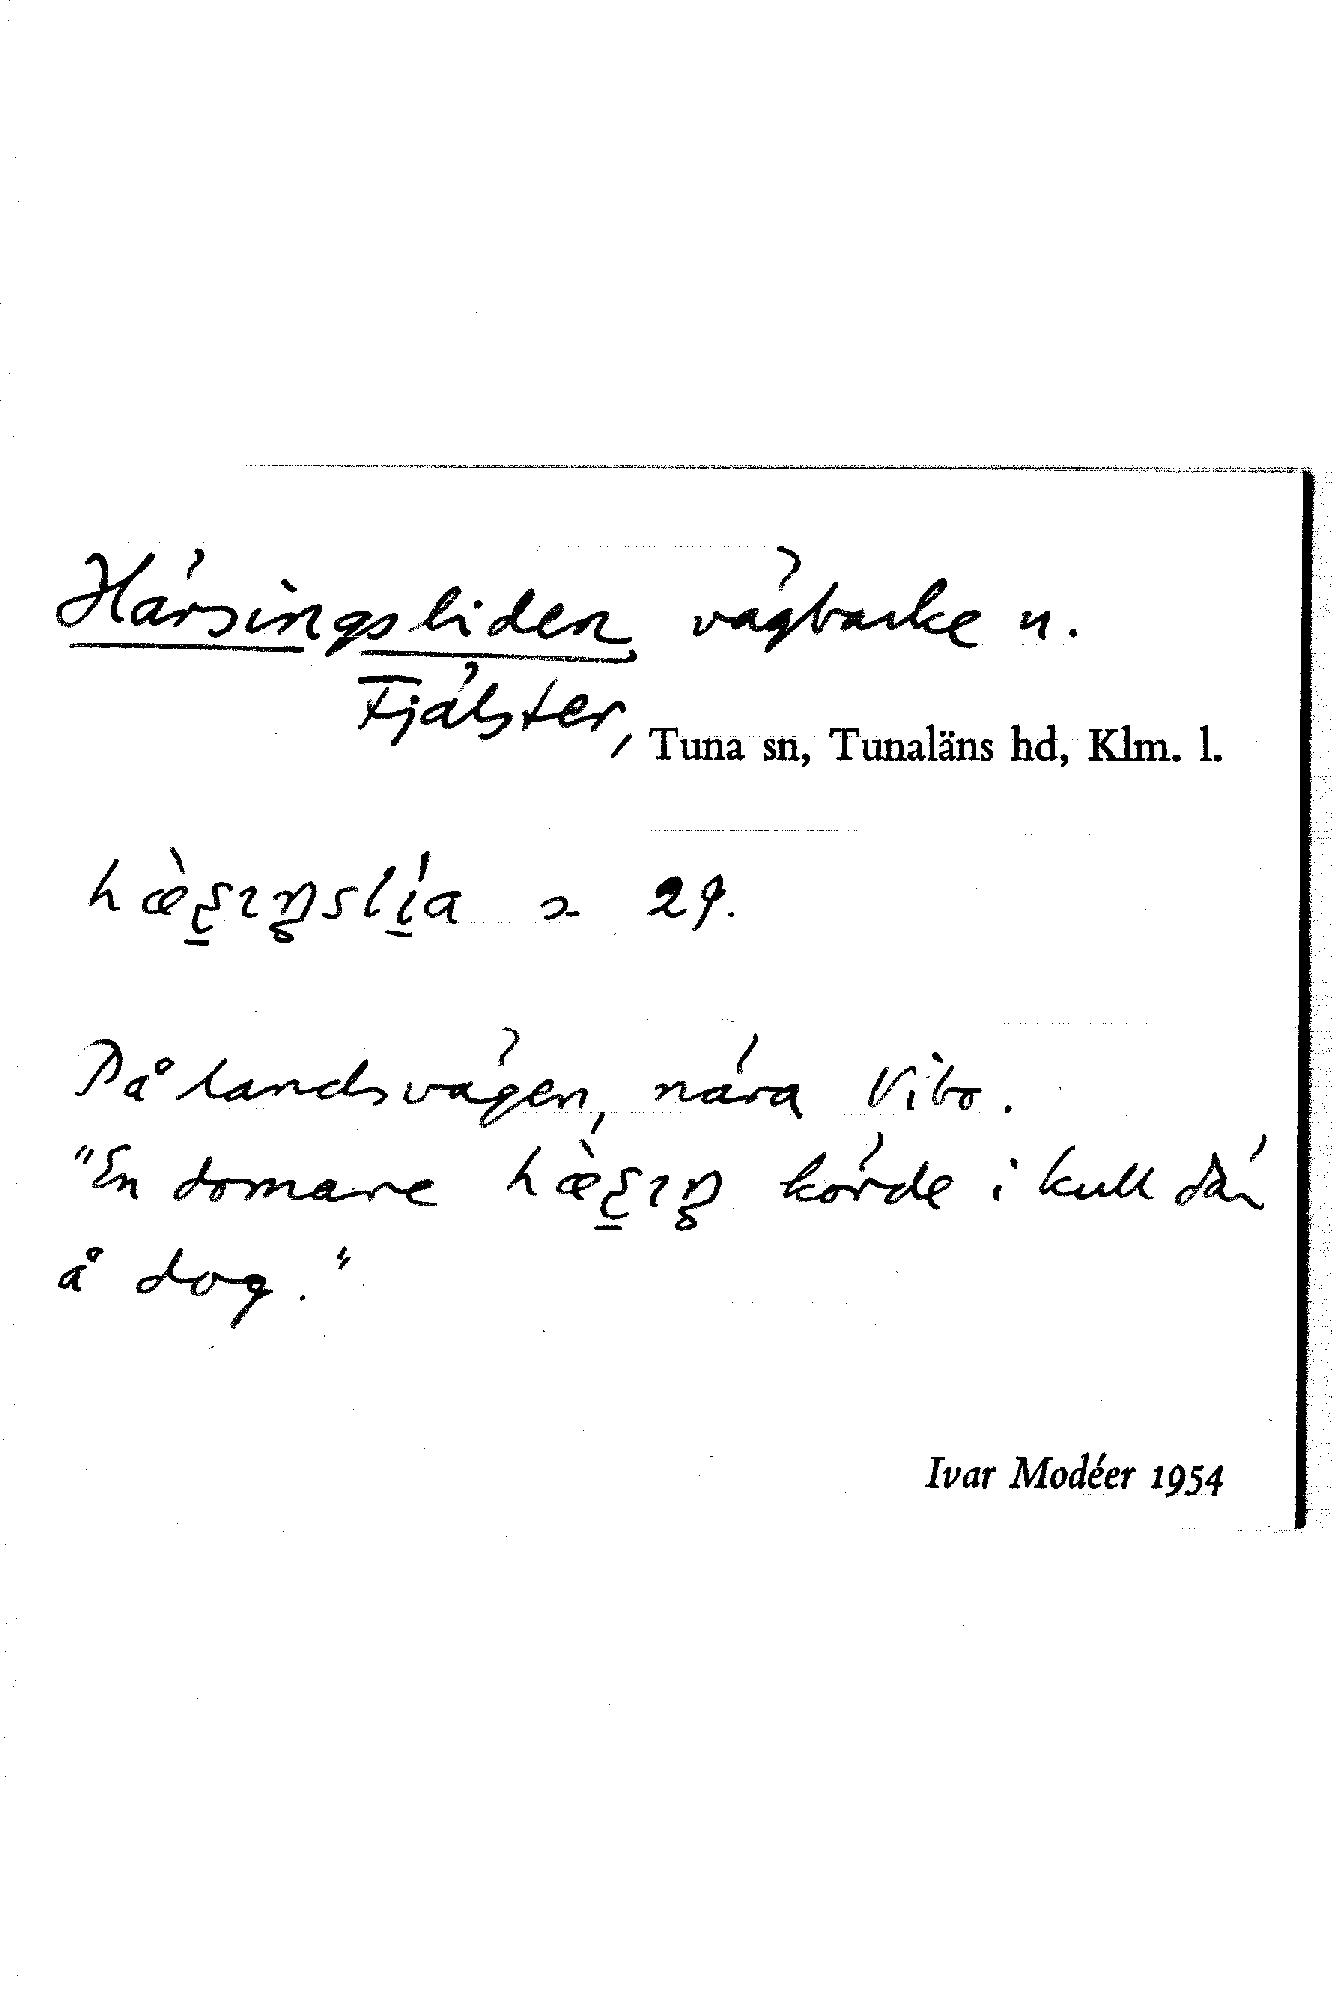 Härsingsliden vägbacke n.
Fjälster,
Tuna sn, Tunaläns hd, Klm. l.
29.
På landsvägen, nära Vibo.
"En domare körde i kull där
å dog."
Ivar Modéer 1954